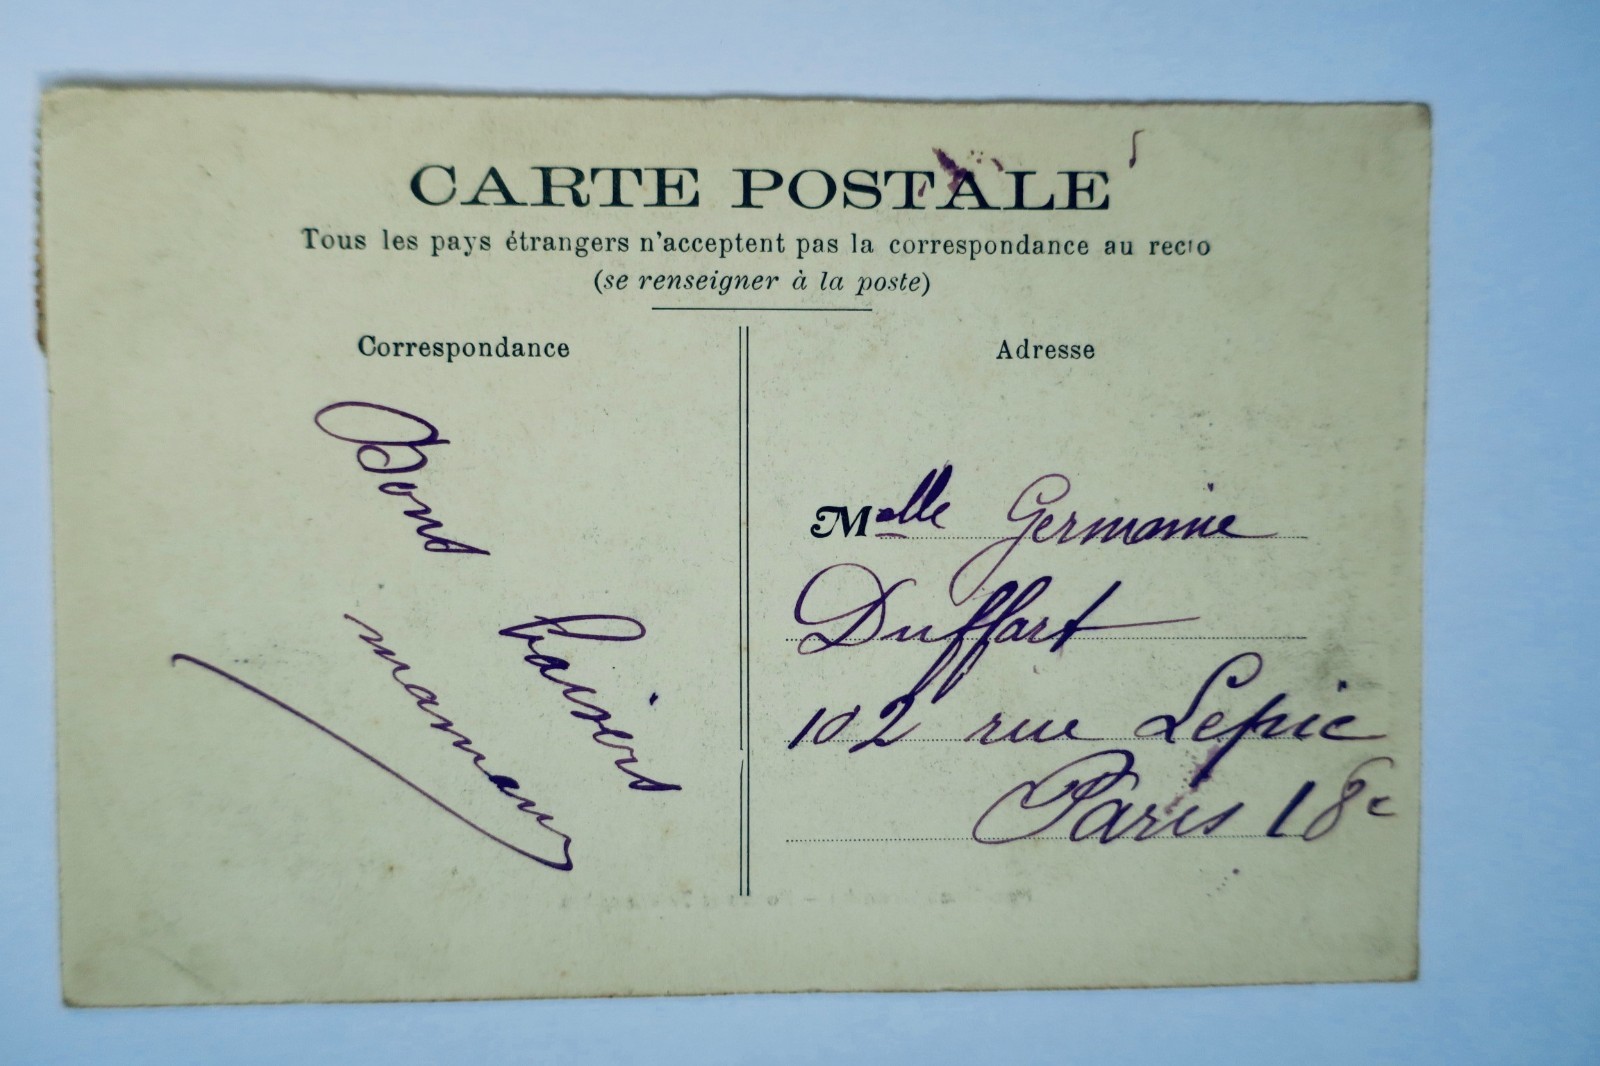 CARTE POSTALE
Tous les pays étrangers n'acceptent pas la correspondance au recto
(se renseigner à la poste)
Correspondance
Bons
baisers
maman
Adresse
Melle Germaine
Duffart
102 rue Lepic
Paris 18e